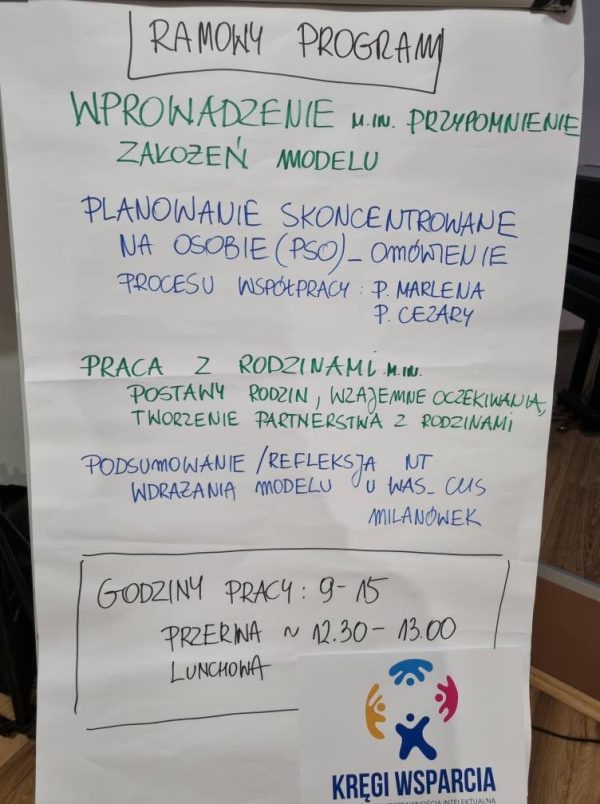 RAMOWY PROGRAM
WPROWADZENIE M.IN. PRZYPOMNIENIE
ZAŁOŻEŃ MODELU
PLANOWANIE SKONCENTROWANE
NA OSOBIE (PSO)_ OMÓWIENIE
PROCESU WSPÓŁPRACY: P. MARLENA
P. CEZARY
PRACA Z RODZINAMI M.IN.
POSTAWY RODZIN, WZAJEMNE OCZEKIWANIA,
TWORZENIE PARTNERSTWA Z RODZINAMI
PODSUMOWANIE /REFLEKSJA NT
WDRAŻANIA MODELU U WAS_ CUS
MILANÓWEK
GODZINY PRACY: 9-15
PRZERWA ~ 12.30 - 13.00
LUNCHOWA
KRĘGI WSPARCIA
INTELEKTUALNĄ